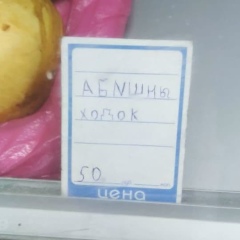 АБИШНЫ
ХОДОК
50
цена